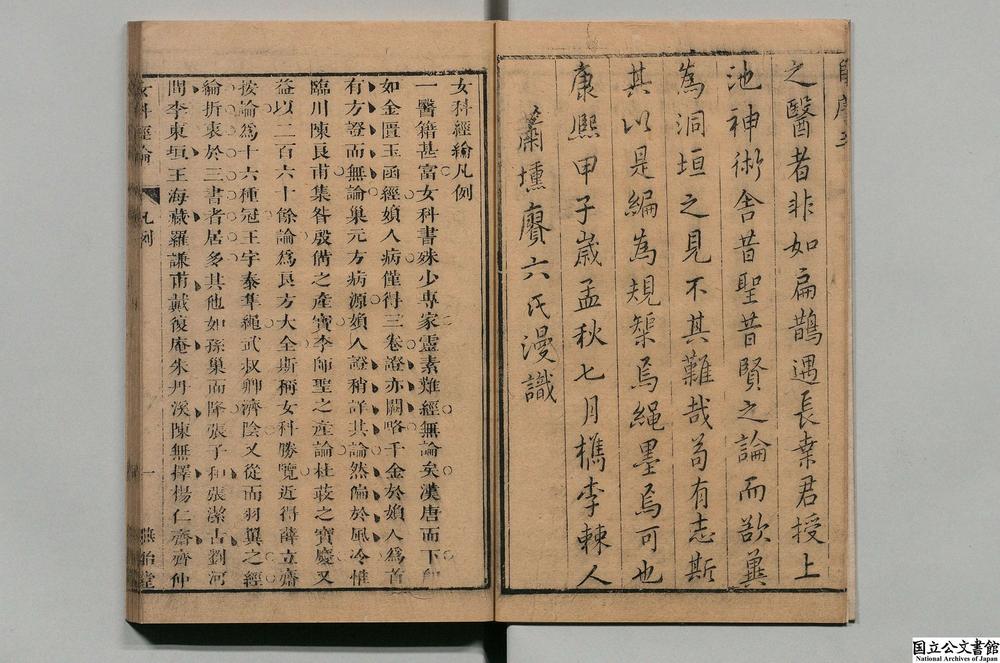 之醫者非如扁鵲遇長桑君授上
池神術舍昔聖昔賢之論而欲冀
為洞垣之見不其難哉苟有志斯
其以是編為規榘焉繩墨焉可也
康熈甲子歳孟秋七月檇李棘人
蕭壎賡六氏漫識
女科經綸凡例
一醫籍甚富女科書殊少專家靈素難經無論矣漢唐而下即
如金匱玉函經婦人病僅得三卷證亦闕略千金於婦人爲首
有方證而無論巢元方病源婦人證稍詳其論然偏於風冷惟
臨川陳良甫集昝殷備之產寶李師聖之產論杜荍之寶慶又
益以二百六十餘論爲良方大全斯稱女科勝覽近得薛立齋
按論爲十六種冠王宇泰凖繩武叔卿濟陰又從而羽翼之經
綸折衷於三書者居多其他如孫巢而降張子和張潔古劉河
間李東垣王海藏羅謙甫戴復庵朱丹溪陳無擇楊仁齋齊仲
女科經綸
凡例
一
燕貽堂
国立公文書館
National Archives of Japan